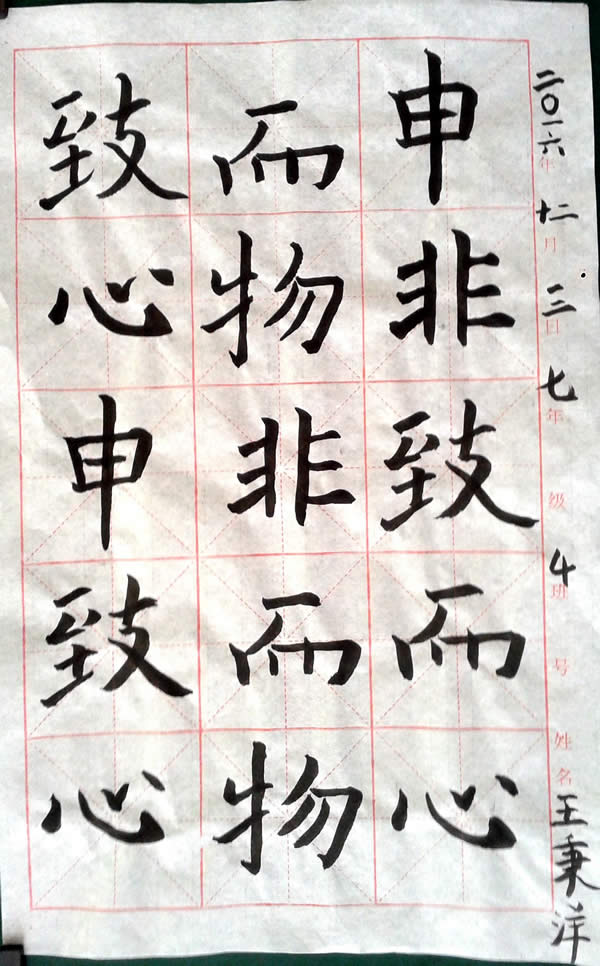 二〇一六年十二月三日七年级4班号姓名王秉洋
申非致而心
而物非而物
致心申致心